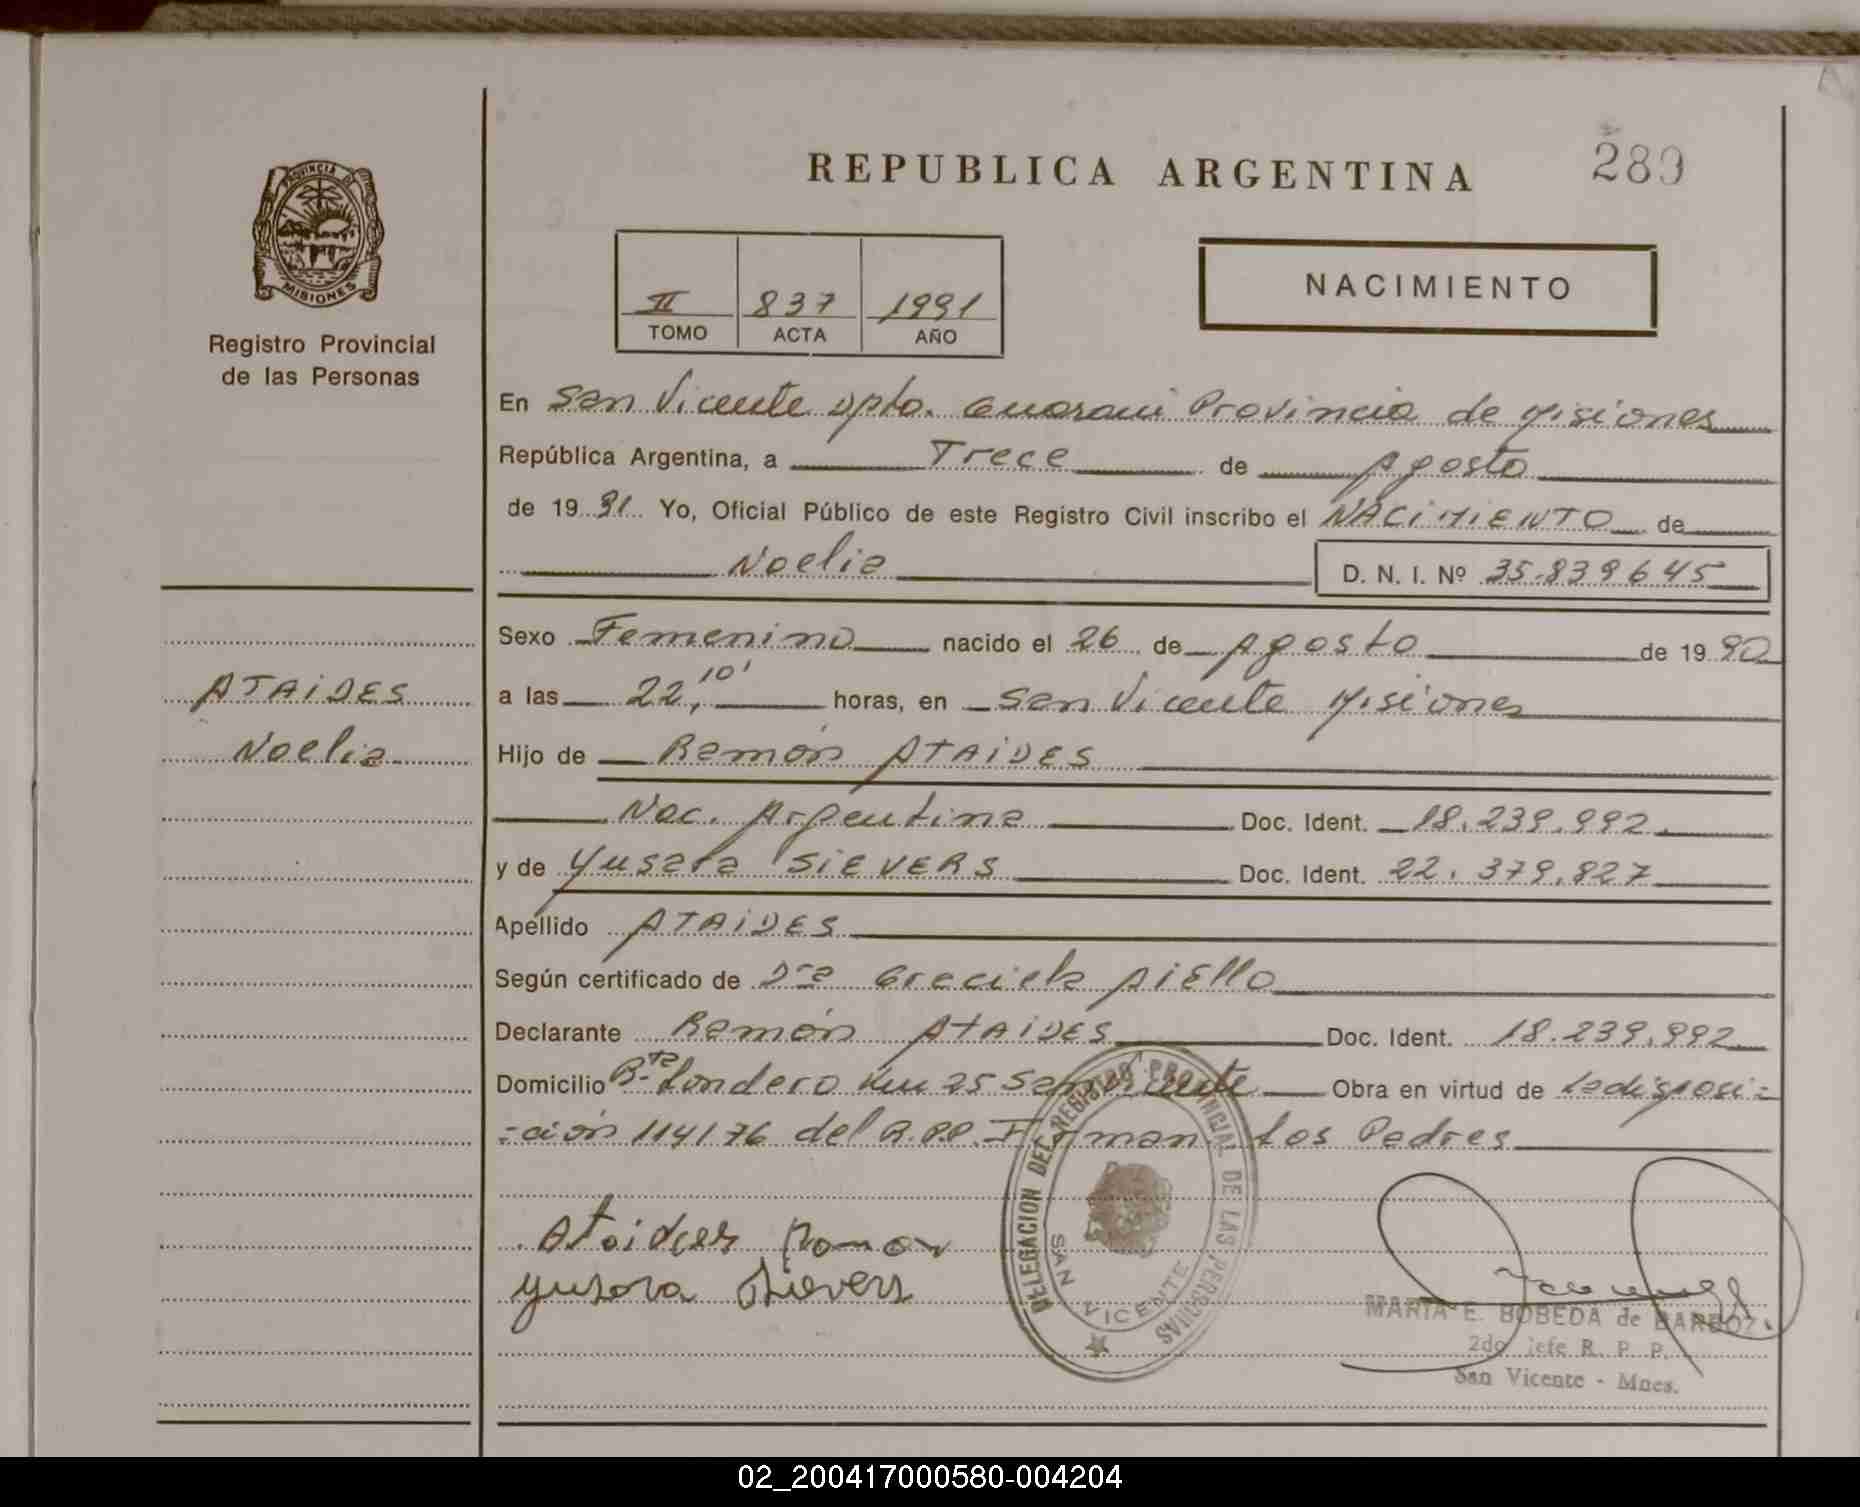 REPUBLICA ARGENTINA
289
PROVINCIA DE
MISIONES
Registro Provincial
de las Personas
II 837 1991
TOMO ACTA AÑO
NACIMIENTO
En San Vicente Dpto. Guarani Provincia de Misiones
República Argentina, a Trece de Agosto
de 19 91 Yo, Oficial Público de este Registro Civil inscribo el NACIMIENTO de
Noelia D. N. I. Nº 35.839645
Sexo Femenino nacido el 26 de Agosto de 19 90
ATAIDES
a las 22,10' horas, en San Vicente Misiones
Noelia
Hijo de Ramón ATAIDES
Nac. Argentina Doc. Ident. 18.239.992
y de Yusara SIEVERS Doc. Ident. 22.379.827
Apellido ATAIDES
Según certificado de Dra Graciela
Declarante Ramón ATAIDES Doc. Ident. 18.239.992
Domicilio Bta Londero Km 25 San Vicente Obra en virtud de La disposi-
-ción 114/76 del R.P.P. Firman Los Padres
Ataides Ramon
Yusara Sievers
DELEGACION DEL REGISTRO PROVINCIAL DE LAS PERSONAS
SAN VICENTE
MARIA E. BOBEDA de BARBOZ
2do Jefe R. P. P.
San Vicente - Mnes.
02_200417000580-004204